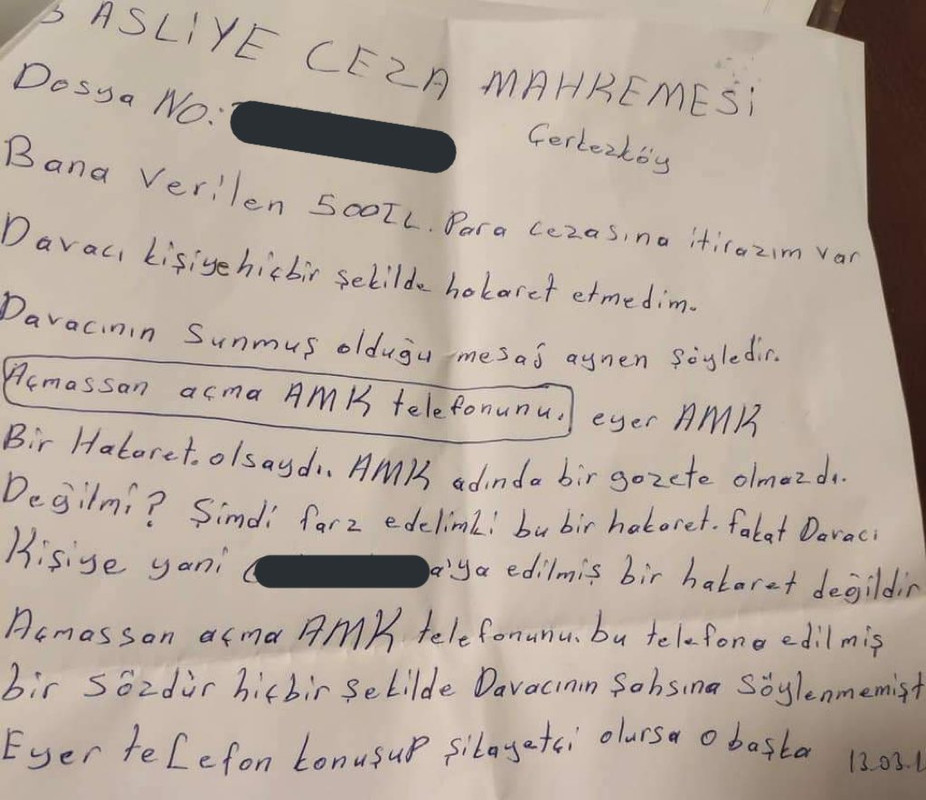 3 ASLİYE CEZA MAHKEMESİ
Dosya No:
Çerkezköy
Bana Verilen 500TL. Para cezasına itirazım var
Davacı kişiye hiçbir şekilde hakaret etmedim.
Davacının Sunmuş olduğu mesaj aynen şöyledir.
Açmassan açma AMK telefonunu. eyer AMK
Bir Hakaret. olsaydı. AMK adında bir gazete olmazdı.
Değilmi? Şimdi farz edelimki bu bir hakaret. fakat Davacı
Kişiye yani a'ya edilmiş bir hakaret değildir
Açmassan açma AMK telefonunu. bu telefona edilmiş
bir sözdür hiçbir şekilde Davacının şahsına söylenmemişt
Eyer telefon konuşup şikayetçi olursa o başka
13.03.